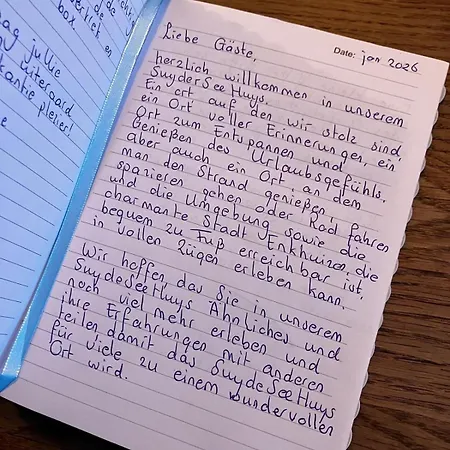 ag jullie
uiteraard
antie plezier!
e
box.
Date: jan 2026
Liebe Gäste,
herzlich willkommen in unserem
SuyderSeeHuys.
Ein Ort auf den wir stolz sind,
ein Ort voller Erinnerungen, ein
Ort zum Entspannen und
Genießen des Urlaubsgefühls.
aber auch ein Ort, an dem
man den Strand genießen,
spazieren gehen oder Rad fahren
und die Umgebung sowie die
charmante Stadt Enkhuizen, die
bequem zu Fuß erreichbar ist,
in vollen Zügen erleben kann.
Wir hoffen, das Sie in unserem
SuydeSeeHuys Ähnliches und
noch viel mehr erleben und
ihre Erfahrungen mit anderen
teilen damit das SuydeSeeHuys
für viele zu einem wundervollen
Ort wird.